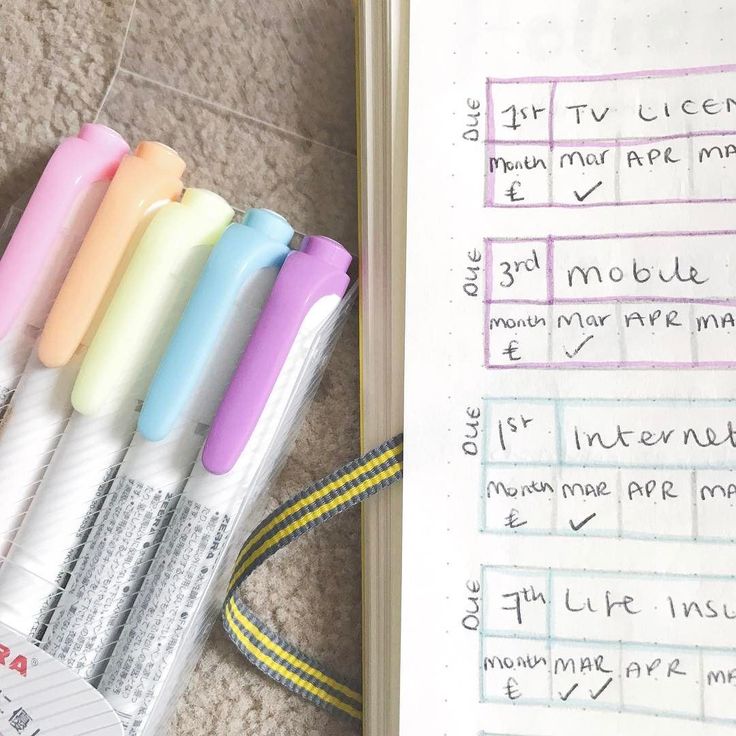 DUE 1st TV LICEN
Month Mar APR MA
£ ✓
DUE 3rd Mobile
Month Mar APR MA
£ ✓
DUE 1st Internet
Month MAR APR MA
£ ✓
DUE 7th Life Insu
Month MAR APR MA
£ ✓✓
ZEBRA
RA®